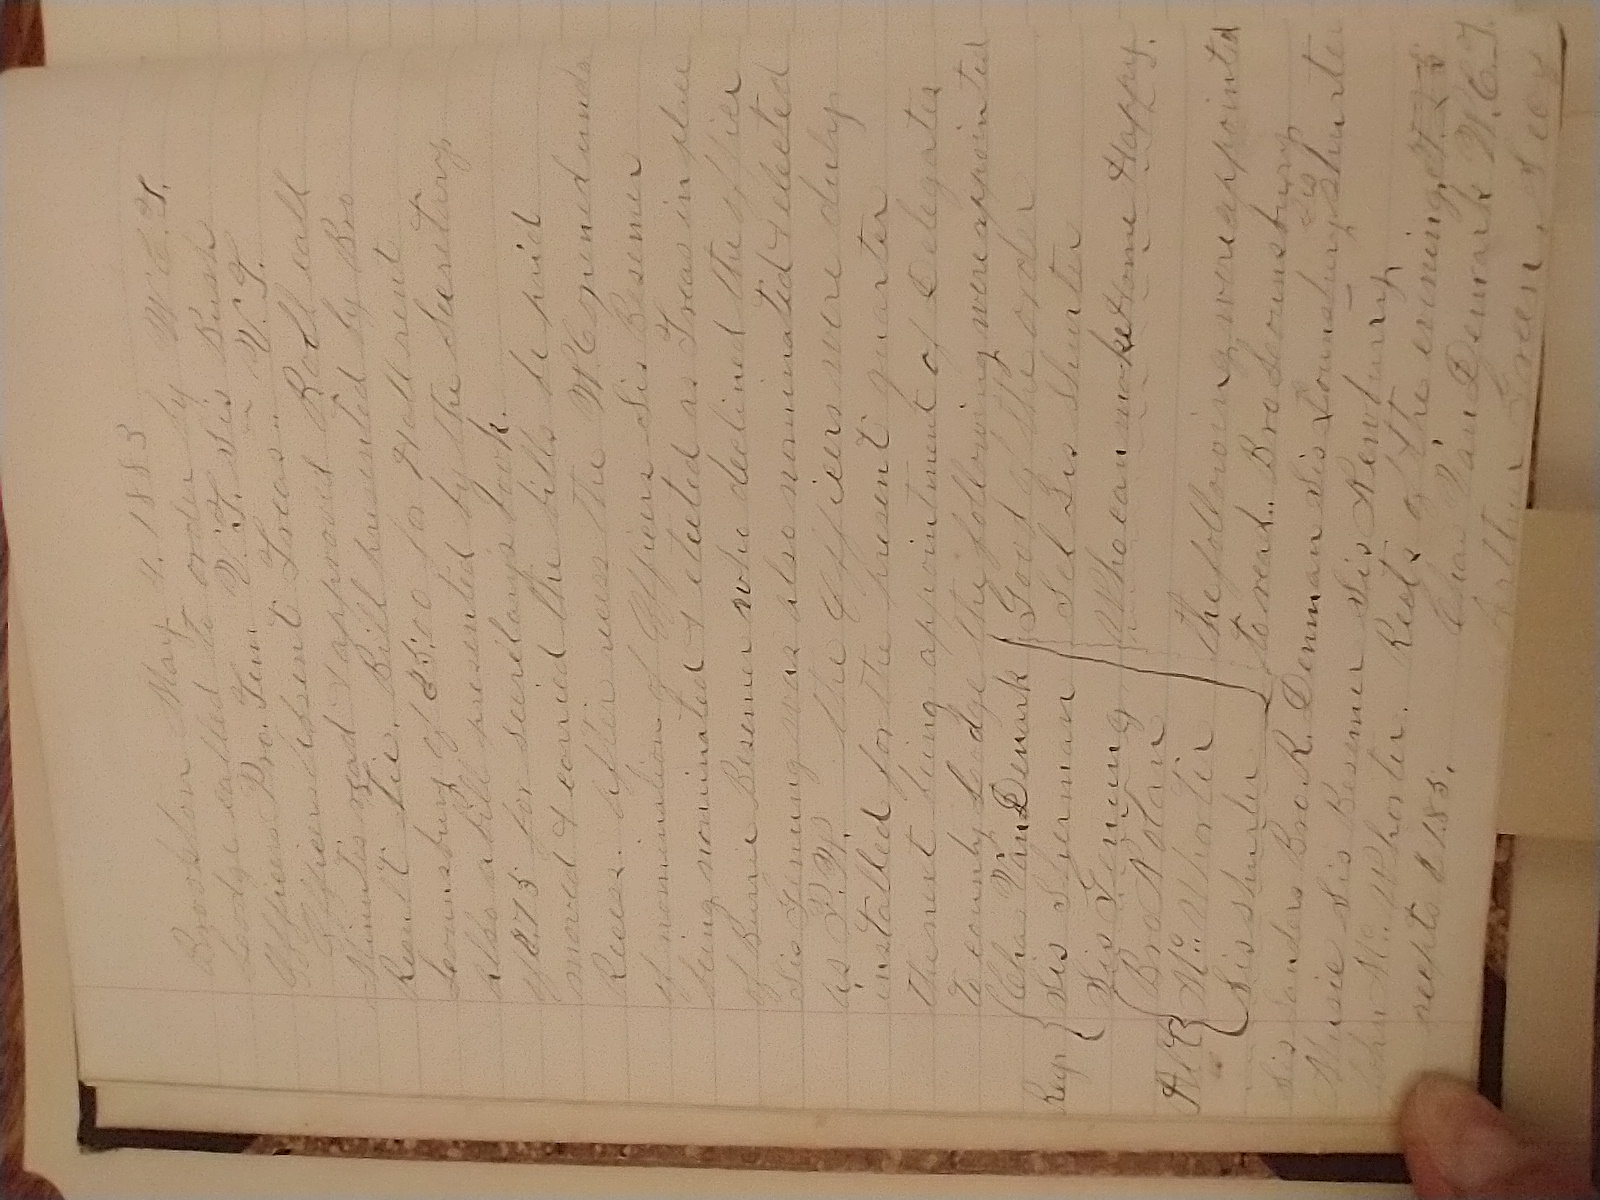 Brookton May 4. 1883
Lodge called to order by W.C.T.
Officers Pro. Tem V.T. Sis Rush
Officers Absent Treas " V.T.
Minutes read & approved Roll call
Result Tie. Bill presented by Bro
Lounsbury of $5.00 for Hall rent
Also a bill presented by the Secretary
of $.75 for secretary's book.
moved & carried the bills be paid
Recess. After recess the W.C opened unde
of nomination of Officers Sis Besemer
being nominated & elected as Treas in place
of Burrie Besemer who declined the office
Sis Genung was also nominated & elected
as P.W. the Officers were duly
installed for the present quarter
the next being appointment of Delegates
to county Lodge the following were appointed
Chas VanDemark Good of the order
Rep Sis Sherman Sel Sis Shurter
Sis Genung Who can make Home Happy.
Bro Nolan
Alt Mc Whorter the following were appointed
Sis Shurter to read.. Bro Lounsbury
Sis Sanders Bro R. Denman Sis Lounsbury Sis Shurter
Music Sis Besemer Sis Newburry
John Mc Whorter. Rects of the evening
recpts $1.85. Chas Van Demark W.C.T.
Arthur Green, Secy